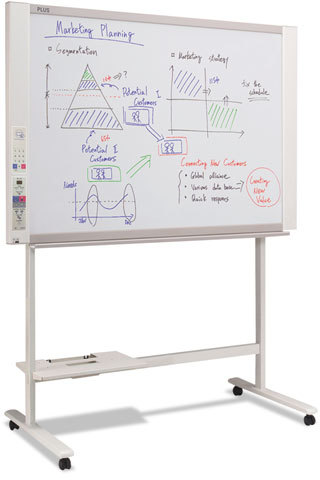 PLUS
Marketing Planning
Segmentation
Marketing strategy
Potential I
Customers
Fix the
schedule
Potential I
Customers
Connecting New Customers
• Global alliance
• Various data base
• Quick respons
Creating
New
Value
Needs